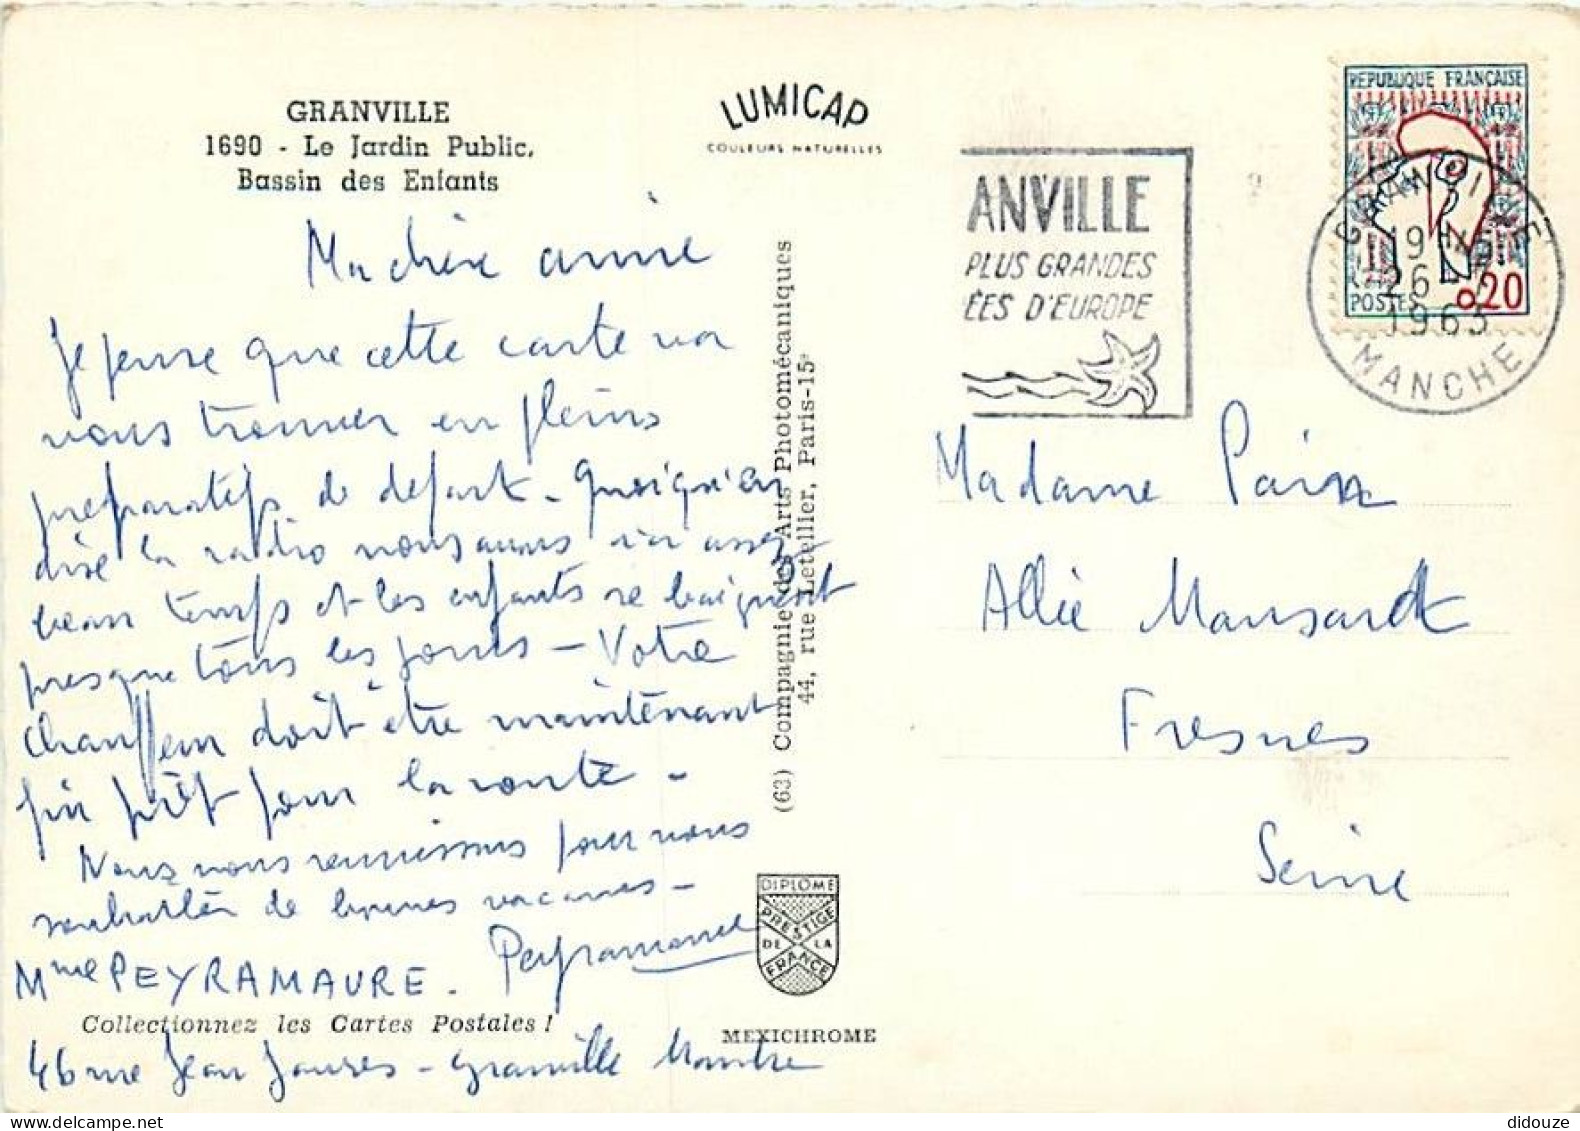 GRANVILLE
1690 - Le Jardin Public,
Bassin des Enfants
LUMICAP
COULEURS NATURELLES
ANVILLE
PLUS GRANDES
ÉES D'EUROPE
REPUBLIQUE FRANÇAISE
POSTES 0,20
GRANVILLE
19H
26 - 7
1963
MANCHE
Ma chère amie
Je pense que cette carte va
vous trouver en pleins
préparatifs de départ - Quoiqu'en
dise la radio nous avons ici assez
beau temps et les enfants se baignent
presque tous les jours - Votre
Chauffeur doit être maintenant
fin prêt pour la route -
Nous nous réunissons pour vous
souhaiter de bonnes vacances -
Mme PEYRAMAURE. Peyramaure
Collectionnez les Cartes Postales !
46 rue Jean Jaurès - Granville Manche
(63) Compagnie des Arts Photomécaniques
44, rue Letellier, Paris-15e
DIPLOME
PRESTIGE
DE LA
FRANCE
MEXICHROME
Madame Paix
Allée Mansardt
Fresnes
Seine
didouze